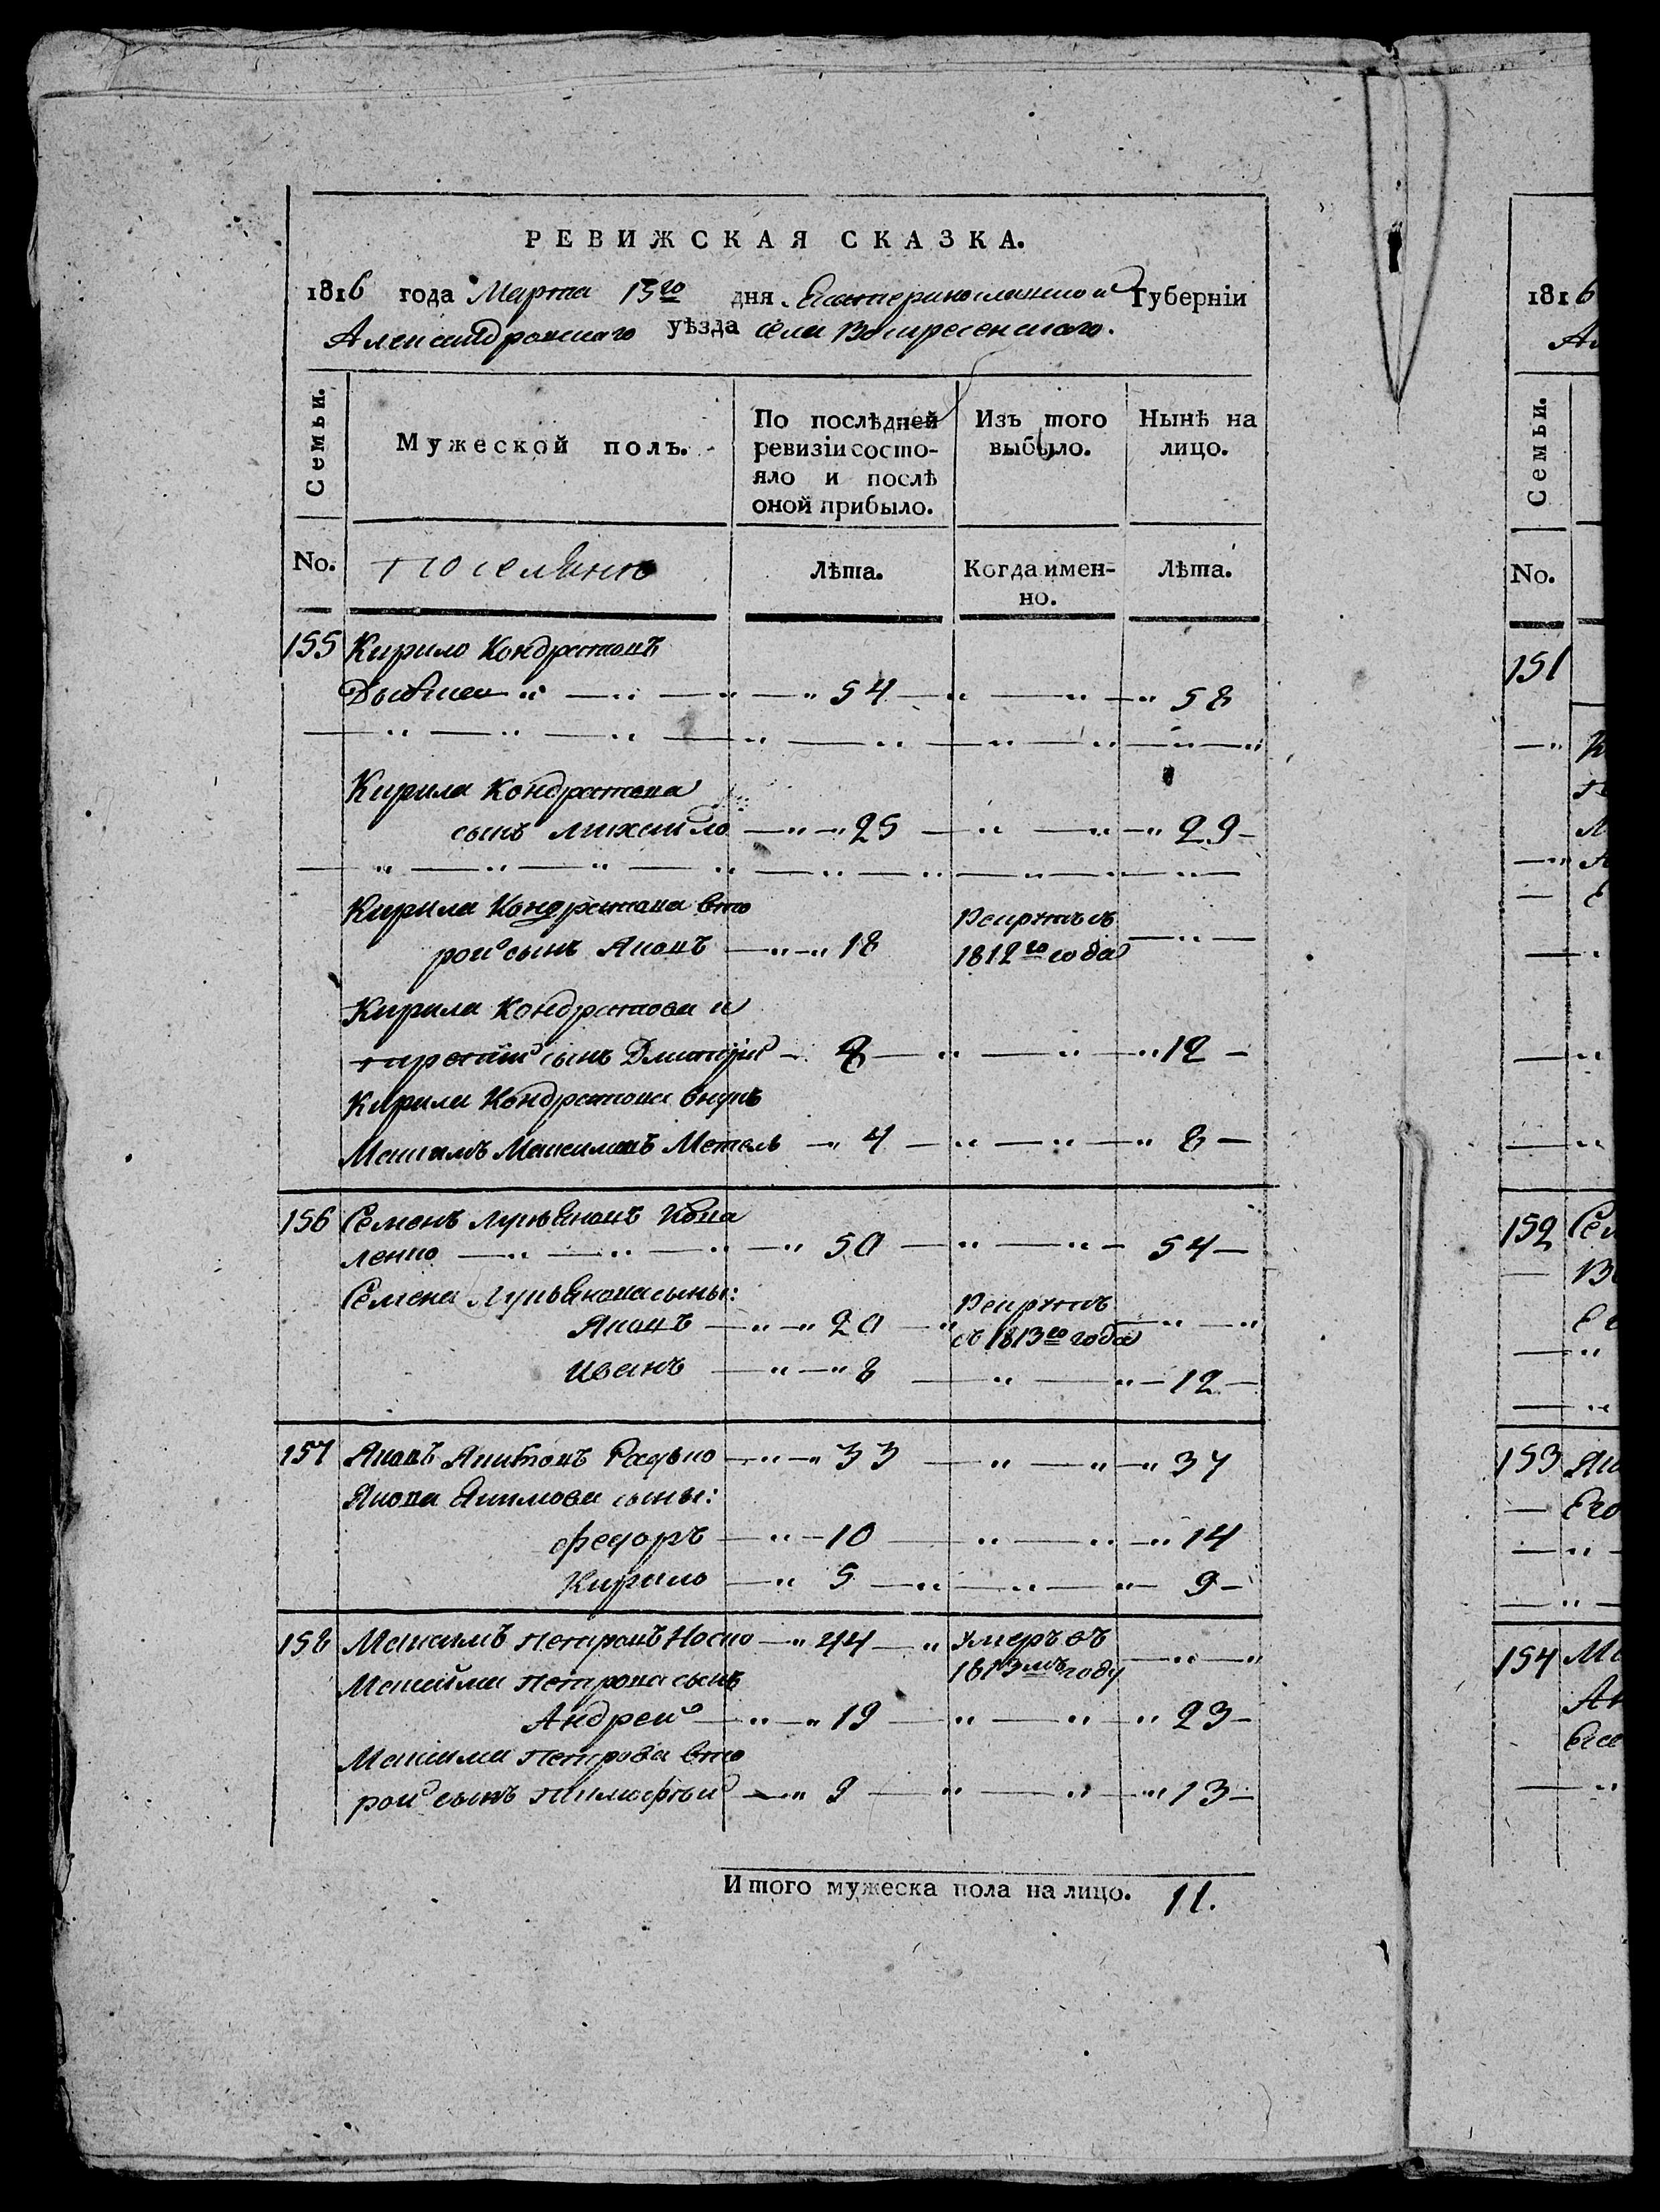 РЕВИЖСКАЯ СКАЗКА.
1816 года Марта 15го дня Екатеринославской Губерніи
Александровскаго уѣзда села Воскресенскаго.
Семьи.
Мужеской полъ.
По послѣдней
ревизіи состо-
яло и послѣ
оной прибыло.
Изъ того
выбыло.
Нынѣ на
лицо.
No. Поселянъ Лѣта. Когда имен-
но. Лѣта.
155 Кирило Кондратовъ
54 58
Кирила Кондратова
сынъ Михайло 25 29
Кирила Кондратова вто Рекрутъ съ
рой сынъ Яковъ 18 1812го года
Кирила Кондратова
третій сынъ Дмитрій 8 12
Кирила Кондратова внукъ
Максимъ Максимовъ 4 8
156 Семенъ Лукьяновъ Кова
ленко 50 54
Семена Лукьянова сыны: Рекрутъ
Яковъ 20 съ 1813го года
Иванъ 8 12
157 Яковъ Радько 33 37
Якова Якимова сыны:
Федоръ 10 14
Кирило 5 9
158 Максимъ Петровъ Носко 44 Умеръ въ
Максима Петрова сынъ 1813мъ году
Андрей 19 23
Максима Петрова вто
рой сынъ Тимофей 9 13
Итого мужеска пола на лицо. 11.
1816
Семьи.
No.
151
152
153
154